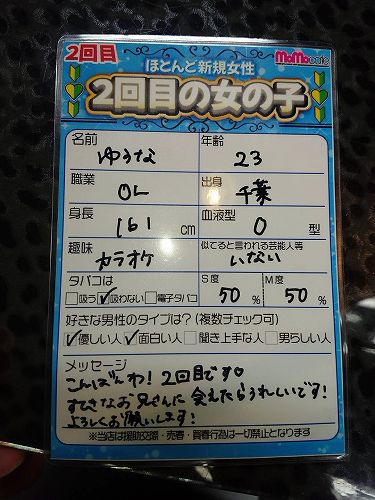 2回目
MoMo cafe
ほとんど新規女性
2回目の女の子
名前 ゆうな 年齢 23
職業 OL 出身 千葉
身長 161 cm 血液型 O 型
趣味 カラオケ 似てると言われる芸能人等 いない
タバコは S度 M度
□吸う ☑吸わない □電子タバコ 50 % 50 %
好きな男性のタイプは？(複数チェック可)
☑優しい人 ☑面白い人 □聞き上手な人 □男らしい人
メッセージ
こんばんわ！2回目です♡
すてきなお兄さんに会えたらうれしいです！
よろしくお願いします！
※当店は援助交際・売春・買春行為は一切禁止となります